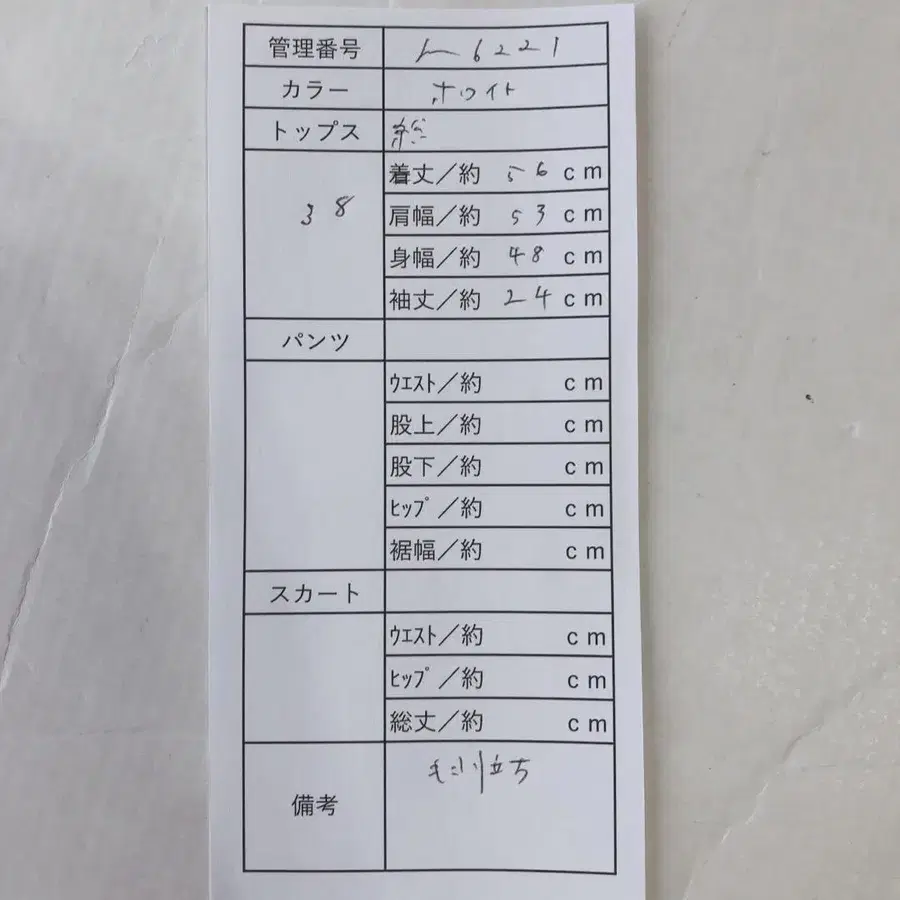 管理番号 6221
カラー ホワイト
トップス
38
着丈/約 56 cm
肩幅/約 53 cm
身幅/約 48 cm
袖丈/約 24 cm
パンツ
ウエスト/約 cm
股上/約 cm
股下/約 cm
ヒップ/約 cm
裾幅/約 cm
スカート
ウエスト/約 cm
ヒップ/約 cm
総丈/約 cm
備考 毛羽立ち